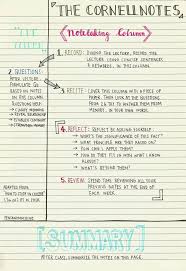 THE CORNELL NOTES
Notetaking Column
1. RECORD: DURING THE LECTURE, RECORD THE
LECTURE USING CONCISE SENTENCES
& KEYWORDS, IN THIS COLUMN.
2. QUESTIONS:
AFTER LECTURE,
FORMULATE Qs
BASED ON NOTES
IN THIS COLUMN.
QUESTIONS HELP
→ CLARIFY MEANING
→ REVEAL RELATIONSHIPS
→ ESTABLISH CONTINUITY
→ STRENGTHEN MEMORY
3. RECITE: COVER THIS COLUMN WITH A PIECE OF
PAPER. THEN LOOK AT THE QUESTIONS
FROM Qs TRY TO ANSWER THEM FROM
MEMORY, IN YOUR OWN WORDS.
4. REFLECT: REFLECT BY ASKING YOURSELF:
→ WHAT'S THE SIGNIFICANCE OF THIS FACT?
→ WHAT PRINCIPLE ARE THEY BASED ON?
→ HOW CAN I APPLY THEM?
→ HOW DO THEY FIT IN WITH WHAT I KNOW
ALREADY?
→ WHAT'S BEYOND THEM?
5. REVIEW: SPEND TIME REVIEWING ALL
YOUR PREVIOUS NOTES AT THE END OF
EACH WEEK.
ADAPTED FROM
HOW TO STUDY IN COLLEGE
[SUMMARY]
AFTER CLASS, SUMMARIZE THE NOTES ON THIS PAGE.